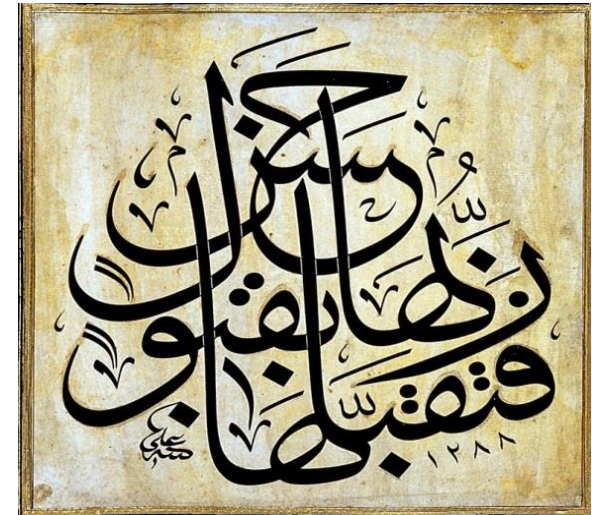 فتقبلها ربها بقبول حسن
علي
١٢٨٨